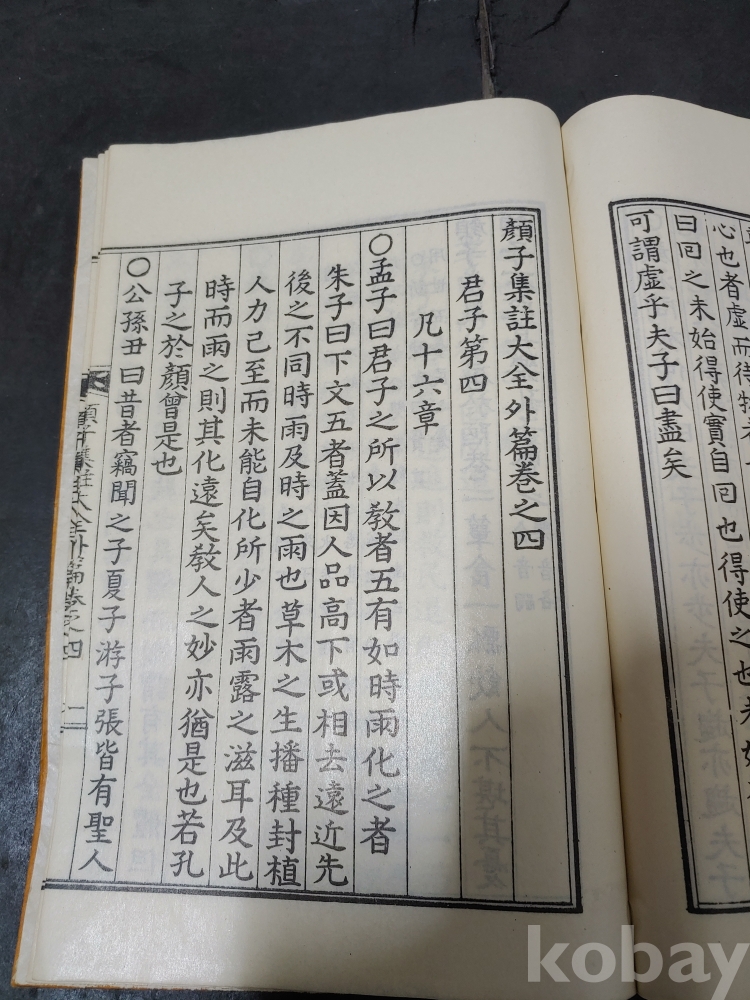 心也者虛而待物者
曰回之未始得使實自回也得使之也未始
可謂虛乎夫子曰盡矣
顏子集註大全外篇卷之四
君子第四
凡十六章
○孟子曰君子之所以敎者五有如時雨化之者
朱子曰下文五者蓋因人品高下或相去遠近先
後之不同時雨及時之雨也草木之生播種封植
人力己至而未能自化所少者雨露之滋耳及此
時而雨之則其化遠矣敎人之妙亦猶是也若孔
子之於顏曾是也
○公孫丑曰昔者竊聞之子夏子游子張皆有聖人
顏子集註大全外篇卷之四
一
kobay